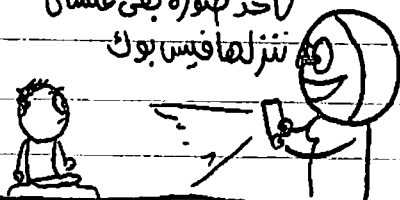 ناخد صورة بقى عشان
ننزلها فيس بوك